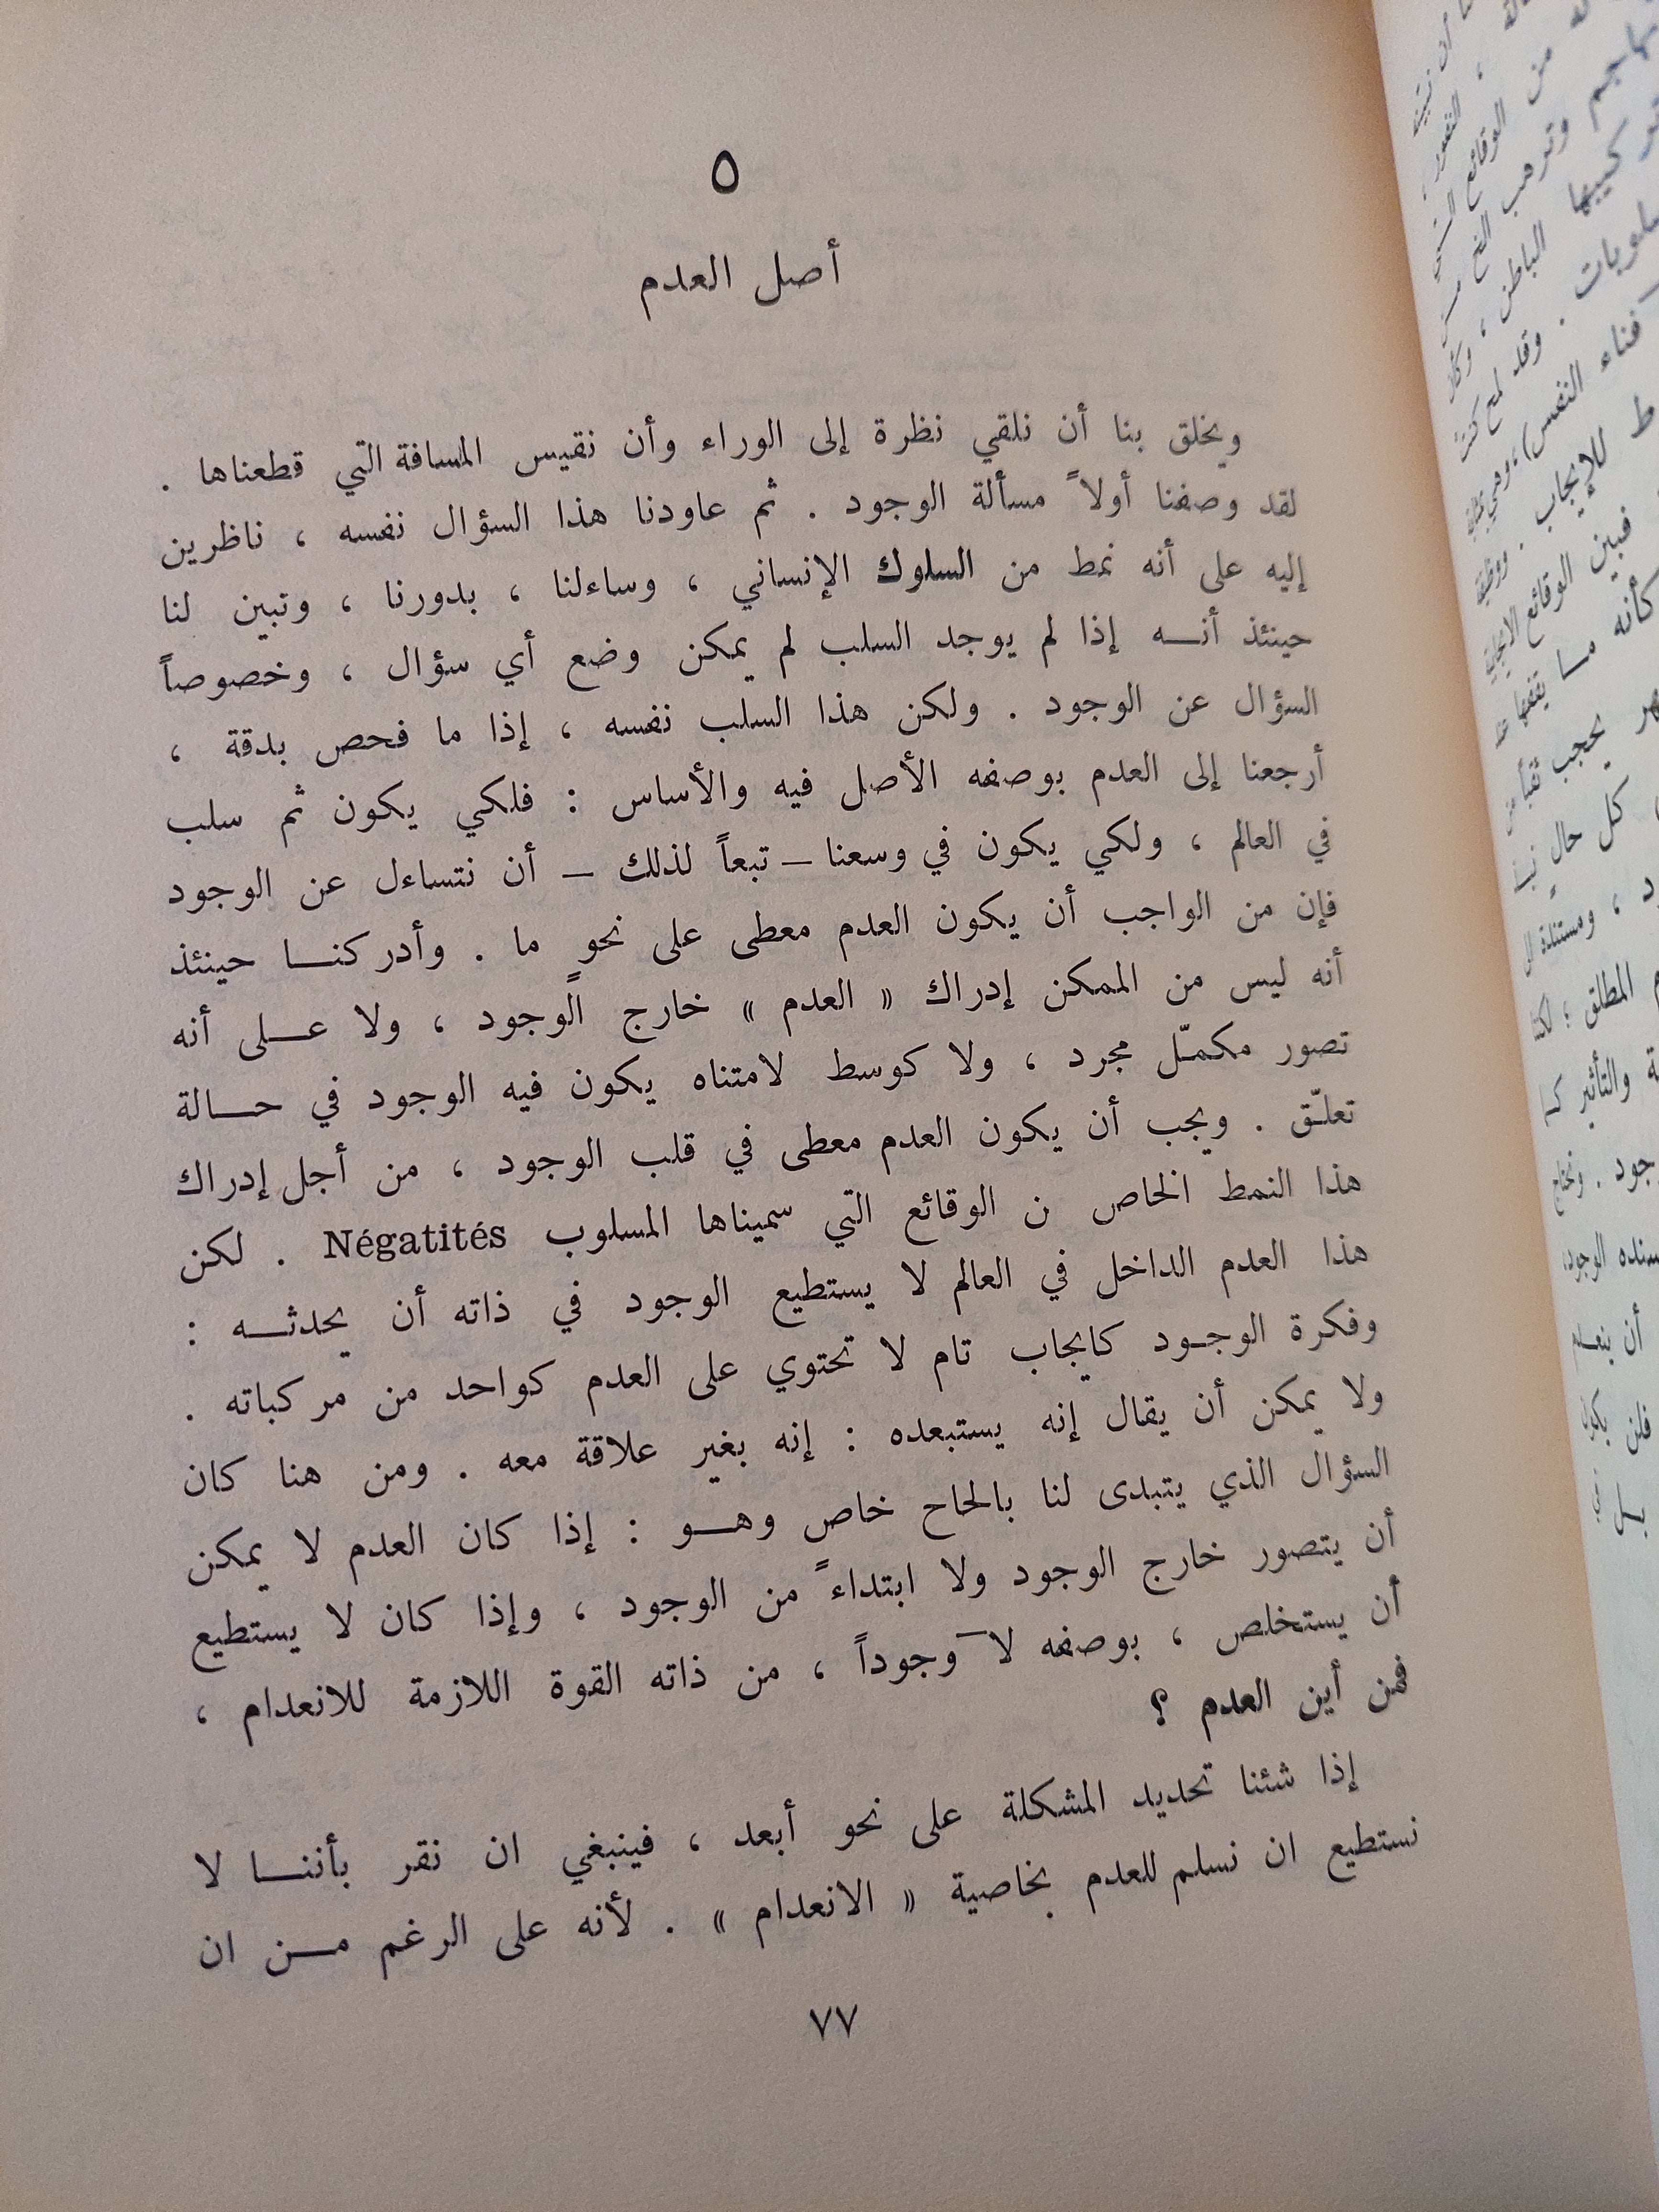 ٥
أصل العدم
ويخلق بنا أن نلقي نظرة إلى الوراء وأن نقيس المسافة التي قطعناها .
لقد وصفنا أولاً مسألة الوجود . ثم عاودنا هذا السؤال نفسه ، ناظرين
إليه على أنه نمط من السلوك الإنساني ، وساءلنا ، بدورنا ، وتبين لنا
حينئذ أنـــه إذا لم يوجد السلب لم يمكن وضع أي سؤال ، وخصوصاً
السؤال عن الوجود . ولكن هذا السلب نفسه ، إذا ما فحص بدقة ،
أرجعنا إلى العدم بوصفه الأصل فيه والأساس : فلكي يكون ثم سلب
في العالم ، ولكي يكون في وسعنا – تبعاً لذلك – أن نتساءل عن الوجود
فإن من الواجب أن يكون العدم معطى على نحوٍ ما . وأدركنـــا حينئذ
أنه ليس من الممكن إدراك « العدم » خارج الوجود ، ولا عـــلى أنه
تصور مكمّل مجرد ، ولا كوسط لامتناه يكون فيه الوجود في حـــالة
تعلّق . ويجب أن يكون العدم معطى في قلب الوجود ، من أجل إدراك
هذا النمط الخاص ن الوقائع التي سميناها المسلوب Négatités . لكن
هذا العدم الداخل في العالم لا يستطيع الوجود في ذاته أن يحدثـــه :
وفكرة الوجـود كايجاب تام لا تحتوي على العدم كواحد من مركباته .
ولا يمكن أن يقال إنه يستبعده : إنه بغير علاقة معه . ومن هنا كان
السؤال الذي يتبدى لنا بالحاح خاص وهـــو : إذا كان العدم لا يمكن
أن يتصور خارج الوجود ولا ابتداءً من الوجود ، وإذا كان لا يستطيع
أن يستخلص ، بوصفه لا – وجوداً ، من ذاته القوة اللازمة للانعدام ،
فمن أين العدم ؟
إذا شئنا تحديد المشكلة على نحو أبعد ، فينبغي ان نقر بأننـــا لا
نستطيع ان نسلم للعدم بخاصية « الانعدام » . لأنه على الرغم مـــن ان
٧٧